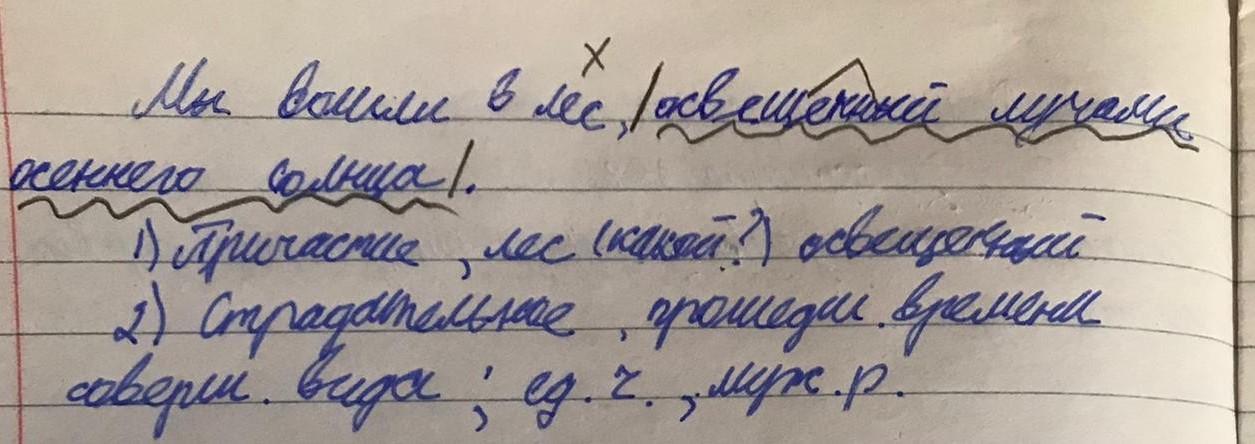 Мы вошли в лес, /освещенный лучами
осеннего солнца/.
1) Причастие, лес (какой?) освещенный
2) Страдательное, прошедш. времени
соверш. вида; ед. ч., муж. р.